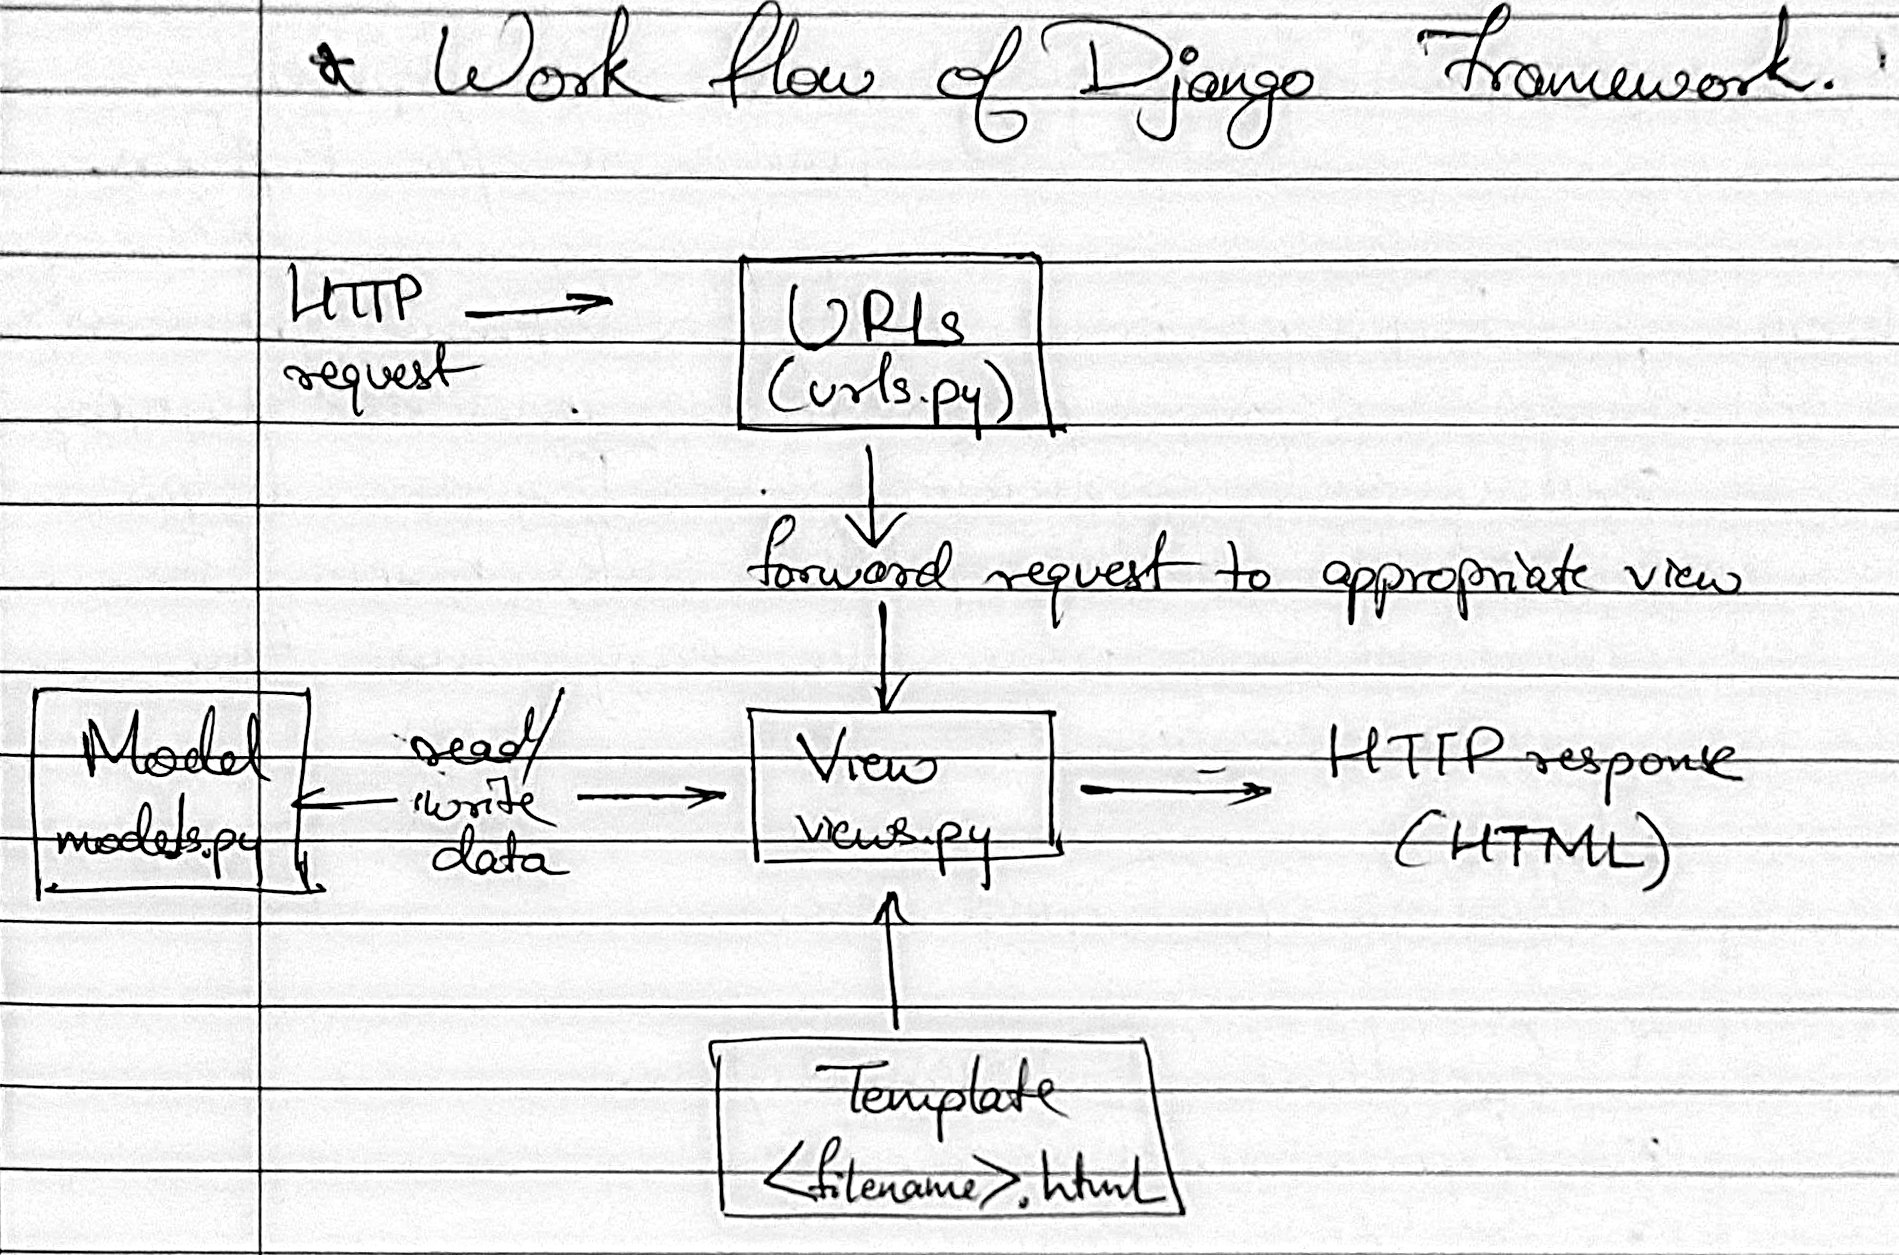 * Work flow of Django Framework.
HTTP
request
URLs
(urls.py)
forward request to appropriate view
Model
models.py
read/
write
data
View
views.py
HTTP response
(HTML)
Template
<filename>.html